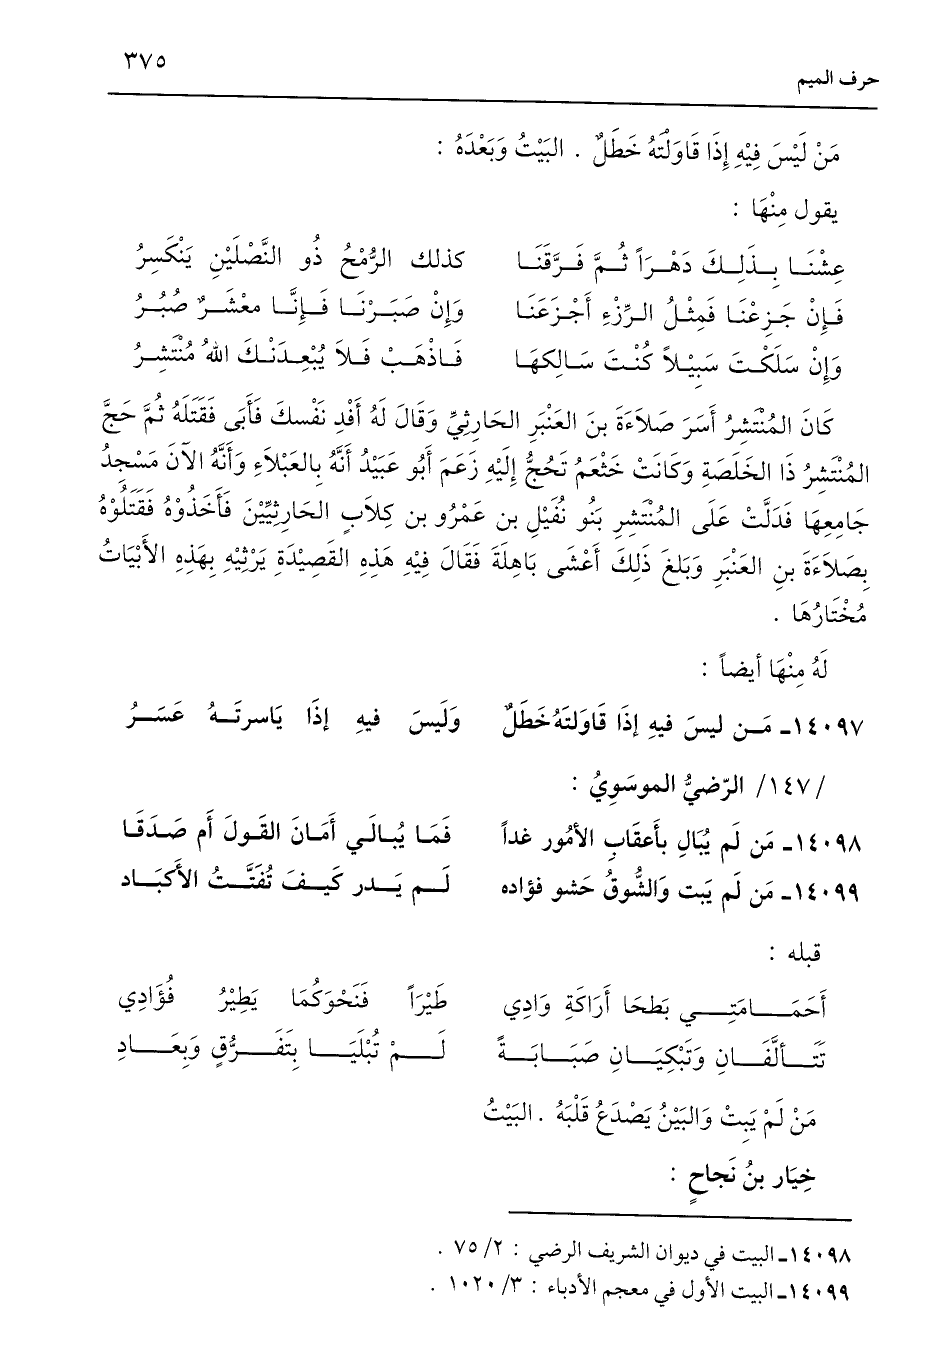 ٣٧٥
حرف الميم
مَنْ لَيْسَ فِيْهِ إِذَا قَاوَلْتَهُ خَطَلٌ . البَيْتُ وَبَعْدَهُ :
يقول مِنْهَا :
عِشْنَا بِذَلِكَ دَهْرَاً ثُمَّ فَرَّقَنَا كذلك الرُّمْحُ ذُو النَّصْلَيْنِ يَنْكَسِرُ
فَإِنْ جَزِعْنَا فَمِثْلُ الرِّزْءِ أَجْزَعَنَا وَإِنْ صَبَرْنَا فَإِنَّا معْشَرٌ صُبُرُ
وَإِنْ سَلَكْتَ سَبِيْلاً كُنْتَ سَالِكهَا فَاذْهَبْ فَلاَ يُبْعِدَنْكَ اللهُ مُنْتَشِرُ
كَانَ المُنْتَشِرُ أَسَرَ صَلاَءَةَ بنَ العَنْبَرِ الحَارثِيِّ وَقَالَ لَهُ أَفْدِ نَفْسكَ فَأَبَى فَقَتَلَهُ ثُمَّ حَجَّ
المُنْتَشِرُ ذَا الخَلَصَةِ وَكَانَتْ خَثْعَمُ تَحُجُّ إِلَيْهِ زَعَمَ أَبُو عَبَيْدُ أَنَّهُ بِالعَبْلاَءِ وَأَنَّهُ الآنَ مَسْجِدُ
جَامِعِهَا فَدَلَّتْ عَلَى المُنْتَشِرِ بَنُو نُفَيْلِ بن عَمْرُو بن كِلاَبِ الحَارِثِيِّيْنَ فَأَخَذُوْهُ فَقَتَلُوْهُ
بِصَلاَءَةَ بنِ العَنْبَرِ وَبَلغَ ذَلِكَ أَعْشَى بَاهِلَةَ فَقَالَ فِيْهِ هَذِهِ القَصِيْدَةِ يَرْثِيْهِ بِهَذِهِ الأَبْيَاتُ
مُخْتَارُهَا .
لَهُ مِنْهَا أيضاً :
١٤٠٩٧ـ مَن ليسَ فيهِ إِذَا قَاوَلتَهُ خَطَلٌ وَلَيسَ فيهِ إِذَا يَاسرتَهُ عَسَرُ
/١٤٧/ الرّضيُّ الموسَوِيُ :
١٤٠٩٨ـ مَن لَم يُبَالِ بأَعقَابِ الأمُور غداً فَمَا يُبالَي أَمَانَ القَولَ أَم صَدَقَا
١٤٠٩٩ـ مَن لَم يَبت وَالشُّوقُ حَشو فؤاده لَم يَدر كَيفَ تُفَتَّتُ الأَكبَاد
قبله :
أَحَمَامَتِي بَطحَا أَرَاكَةِ وَادِي طَيْرَاً فَنَحْوَكُمَا يَطِيْرُ فُؤَادِي
تَتَأَلَّفَانِ وَتَبْكِيَانِ صَبَابَةً لَمْ تُبْلَيَا بِتَفَرُّقٍ وَبِعَادِ
مَنْ لَمْ يَبِتْ وَالبَيْنُ يَصْدَعُ قَلْبَهُ . البَيْتُ
خِيَار بنُ نَجاحٍ :
١٤٠٩٨ـ البيت في ديوان الشريف الرضي : ٢/ ٧٥ .
١٤٠٩٩ـ البيت الأول في معجم الأدباء : ٣/ ١٠٢٠ .